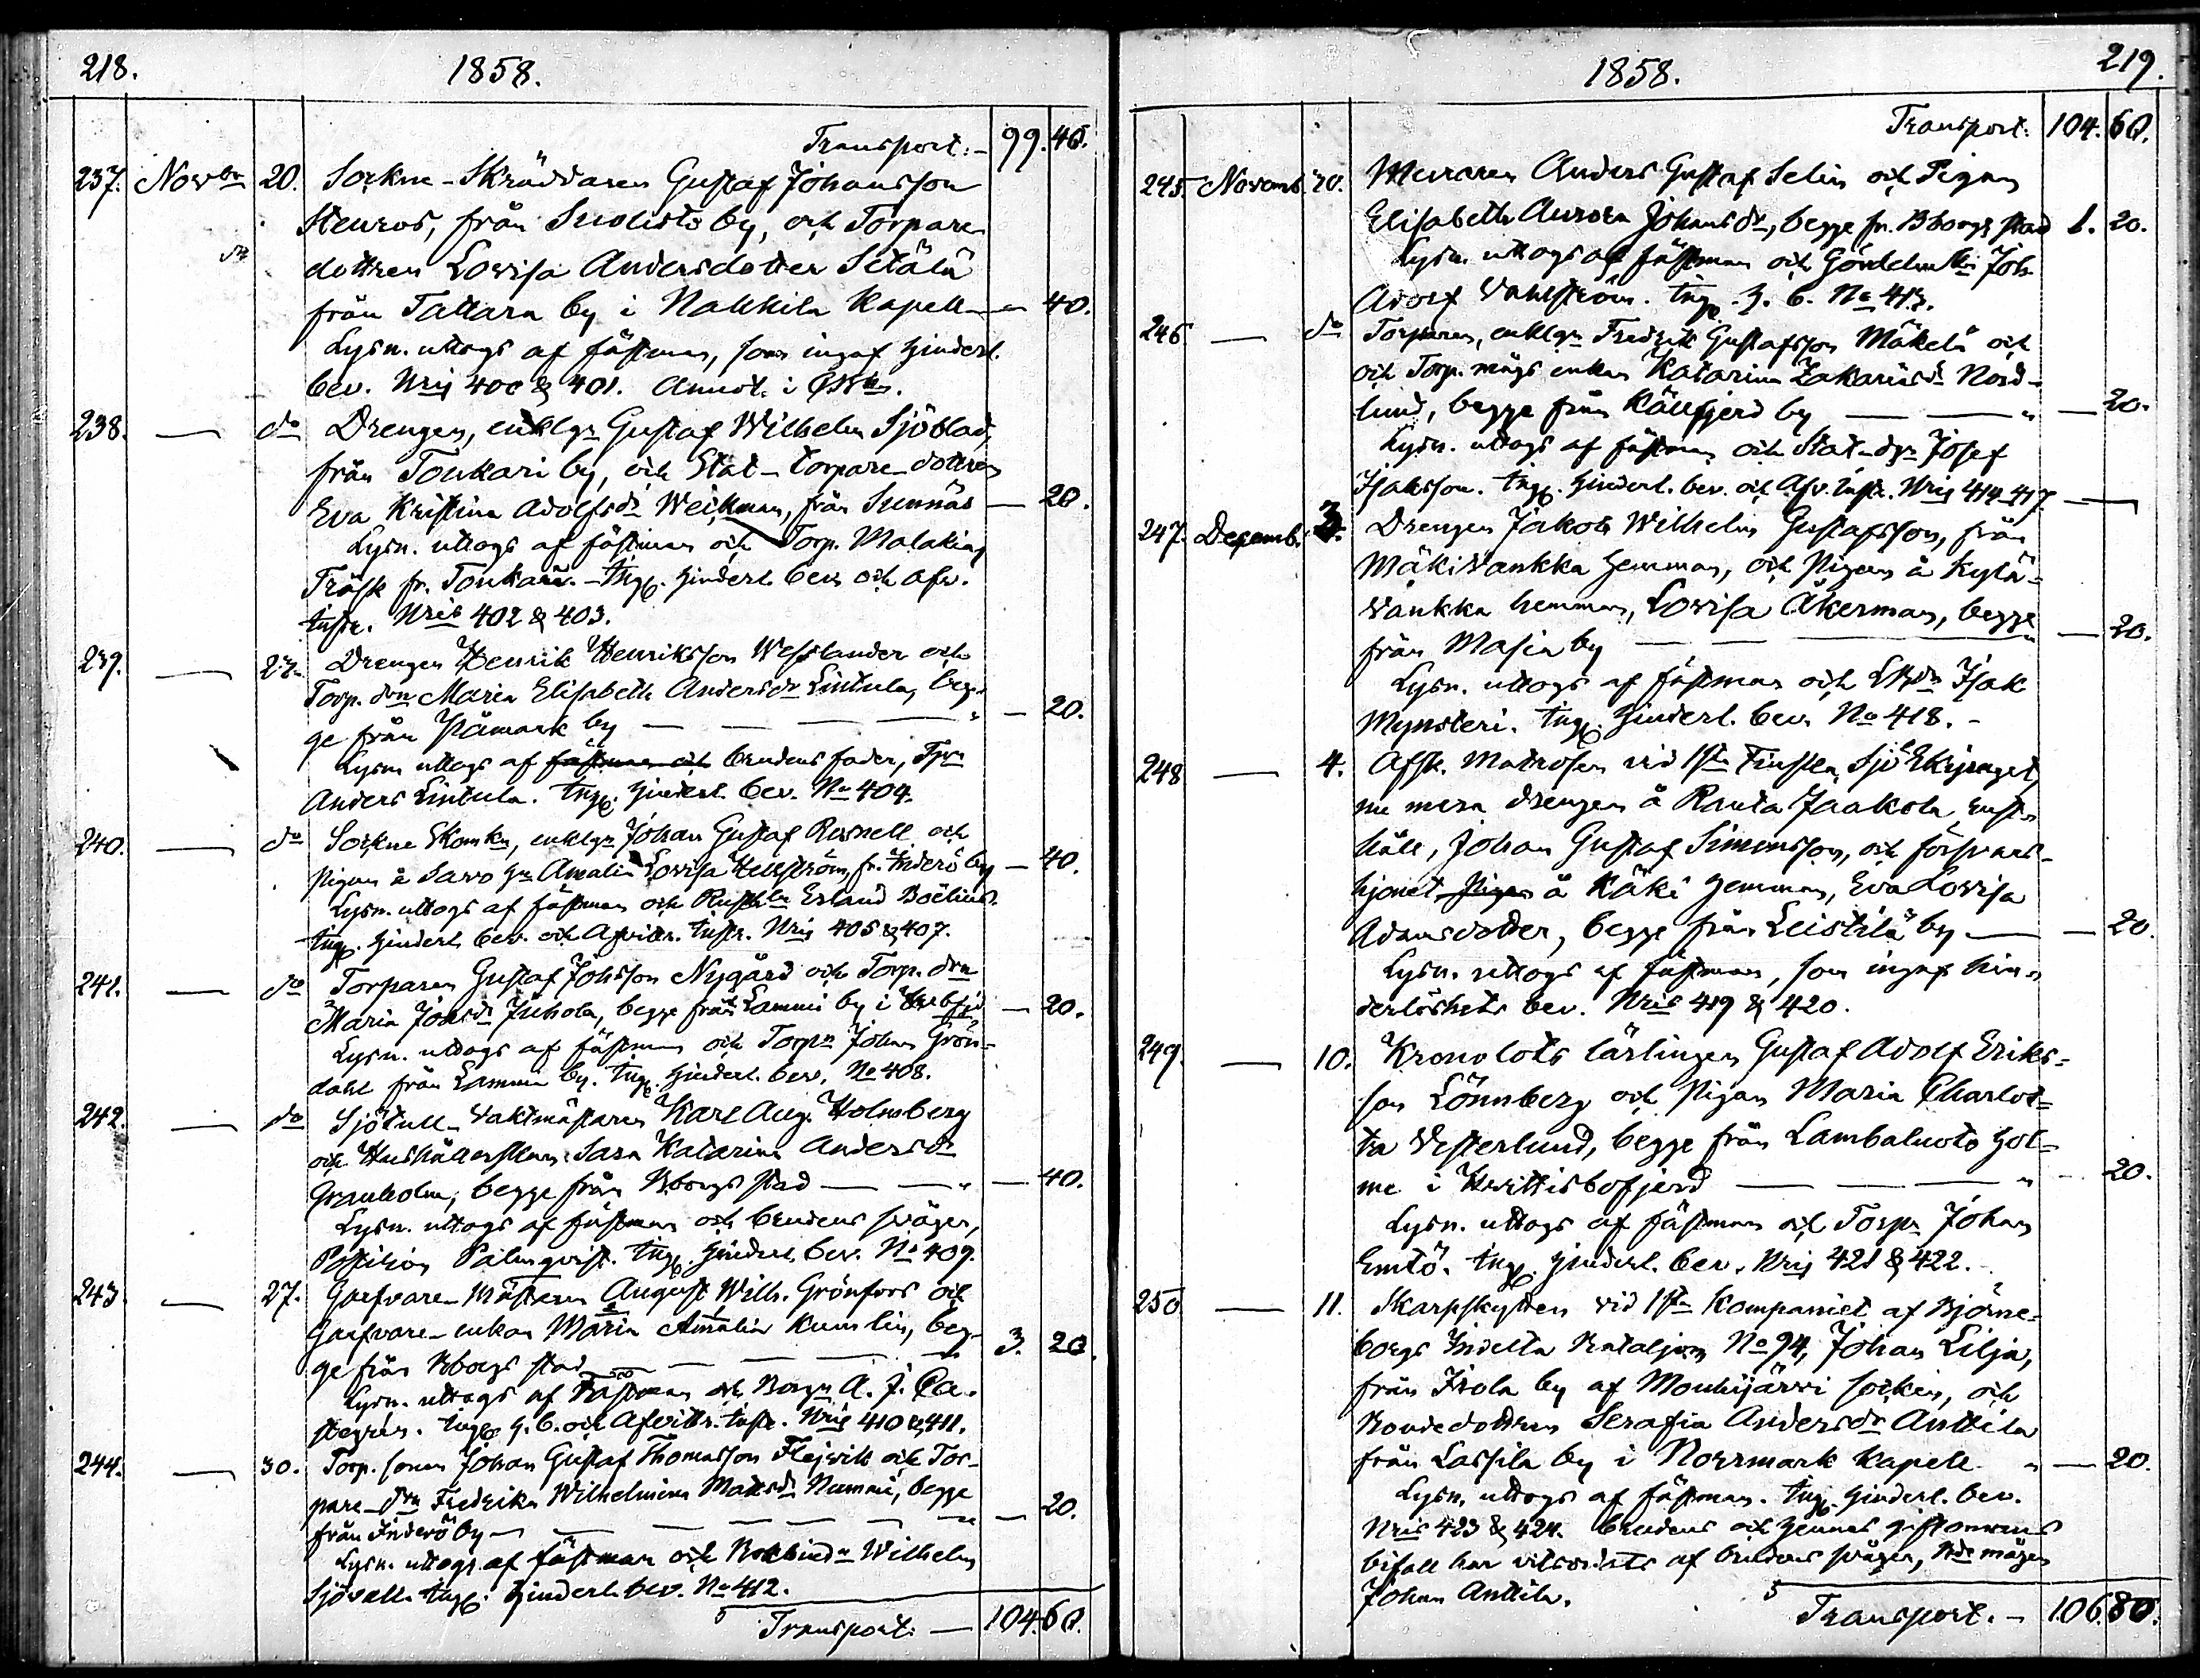 218. 1858.
Transport:- 99. 40.
237. Novbr 20. Sockne-Skräddaren Gustaf Johansson
Stenros, från Suolisto by, och Torpare
dottren Lovisa Andersdotter Setälä
från Tattara by i Nakkila Kapell — 40.
Lysn. uttogs af fästman, som ingaf hinderl.
bev. Nris 400 & 401. Annot. i
238. — do Drengen, enklgn Gustaf Wilhelm Sjöblad,
från Toukari by, och Stat-torpare-dottren
Eva Kristina Adolfsdr Weikman, från Sunnäs — 20.
Lysn. uttogs af fästman och Torp. Malakias
Träsk fr. Toukari. - Ingg. hinderl. bev. och afv.
instr. Nris 402 & 403.
239. — 27. Drengen Henrik Henriksson Wesslander och
Torp. drn Maria Elisabeth Andersdr Lintula, beg-
ge från Påmark by — — — — 20.
Lysn. uttogs af fästman och brudens fader, Tprn
Anders Lintula. Ingg. hinderl. bev. No 404.
240. — do Sockne Skomkn, enklgn Johan Gustaf Rosnell och
Pigan å Savo hn Amalia Lovisa Hellström, fr. Inderö by — 40.
Lysn. uttogs af fästman och Rusthln Erland Boëlius.
Ingg. hinderl. bev. och Afvittr. instr. Nris 405 & 407.
241. — do Torparen Gustaf Johsson Nygård och Torp. drn
Maria Johsdr Juhola, begge från Lammi by i — 20.
Lysn. uttogs af fästman och Torpn Johan Grön-
dahl från Lammi by. Ingg. hinderl. bev. No 408.
242. — do Sjötull-Vaktmästaren Karl Aug. Holmberg
och Hushållerskan Sara Katarina Andersdr
Granholm, begge från Bborgs stad — — — 40.
Lysn. uttogs af fästman och brudens svåger,
Postiljon Palmqvist. Ingg. hinderl. bev. No 409.
243 — 27. Garfvare-Mästaren August Wilh. Grönfors och
Garfvare-enkan Maria Amalia Kumlin, beg-
ge från Bborgs stad — — — 3. 20.
Lysn. uttogs af Fästman och Borgn A. J. Ca-
stegrén. Ingg. h. b. och Afvittr. instr. Nris 410 & 411.
244. — 30. Torp. sonen Johan Gustaf Thomasson Flejvik och Tor-
pare-drn Fredrika Wilhelmina Matsdr Nummi, begge
från Inderö by — — — — — 20.
Lysn. uttogs af fästman och Bokbindn Wilhelm
Sjövall. Ingg. hinderl. bev. No 412.
Transport: — 104. 60.
1858. 219.
Transport: 104. 60.
245. Novemb. 30. Muraren Anders Gustaf Selin och Pigan
Elisabeth Aurora Johansdr, begge fr. Bborgs stad 1. 20.
Lysn. uttogs af fästman och Joh.
Adolf Vahlström. Ingg. h. b. No 413.
246 — do Torparen, enklgn Fredrik Gustafsson Mäkelä och
och Torp. mågs enkan Katarina Zakariasdr Nord-
lund, begge från Källfjerd by — — — 20.
Lysn. uttogs af fästman och Stat-dgn Josef
Isaksson. Ingg. hinderl. bev. och Afv. instr. Nris 414-417. —
247. Decemb. 3. Drengen Jakob Wilhelm Gustafsson, från
Mäkivankka hemman, och Pigan å Kylä-
vankka hemman, Lovisa Åkerman, begge
från Masia by — — — — 20.
Lysn. uttogs af fästman och Isak
Mynsteri. Ingg. hinderl. bev. No 418. -
248 — 4. Afsk. Matrosen vid 1sta Finska Sjö Ekipaget,
nu mera drengen å Ranta Jaakola rust-
håll, Johan Gustaf Simonsson, och försvars-
hjonet Pigan å Käki hemman, Eva Lovisa
Adamsdotter, begge från Leistilä by — — 20.
Lysn. uttogs af fästman, som ingaf hin-
derlöshets bev. Nris 419 & 420.
249. — 10. Kronolots lärlingen Gustaf Adolf Eriks-
son Lönnberg och Pigan Maria Charlot-
ta Vesterlund, begge från Lambaluoto hol-
me i Hvittisbofjerd — — — — 20.
Lysn. uttogs af fästman och Torpn Johan
Emtö. Ingg. hinderl. bev. Nris 421 & 422.
250 — 11. Skarpskytten vid 1sta Kompaniet af Björne-
borgs Indelta Bataljon No 94, Johan Lilja,
från Isola by af Mouhijärvi socken, och
Bondedottren Serafia Andersdr Anttila
från Lassila by i Norrmark Kapell — 20.
Lysn. uttogs af fästman. Ingg. hinderl. bev.
Nris 423 & 424. brudens och hennes giftomans
bifall har vitsordats af brudens svåger, Bde mågen
Johan Anttila.
Transport. - 106. 80.